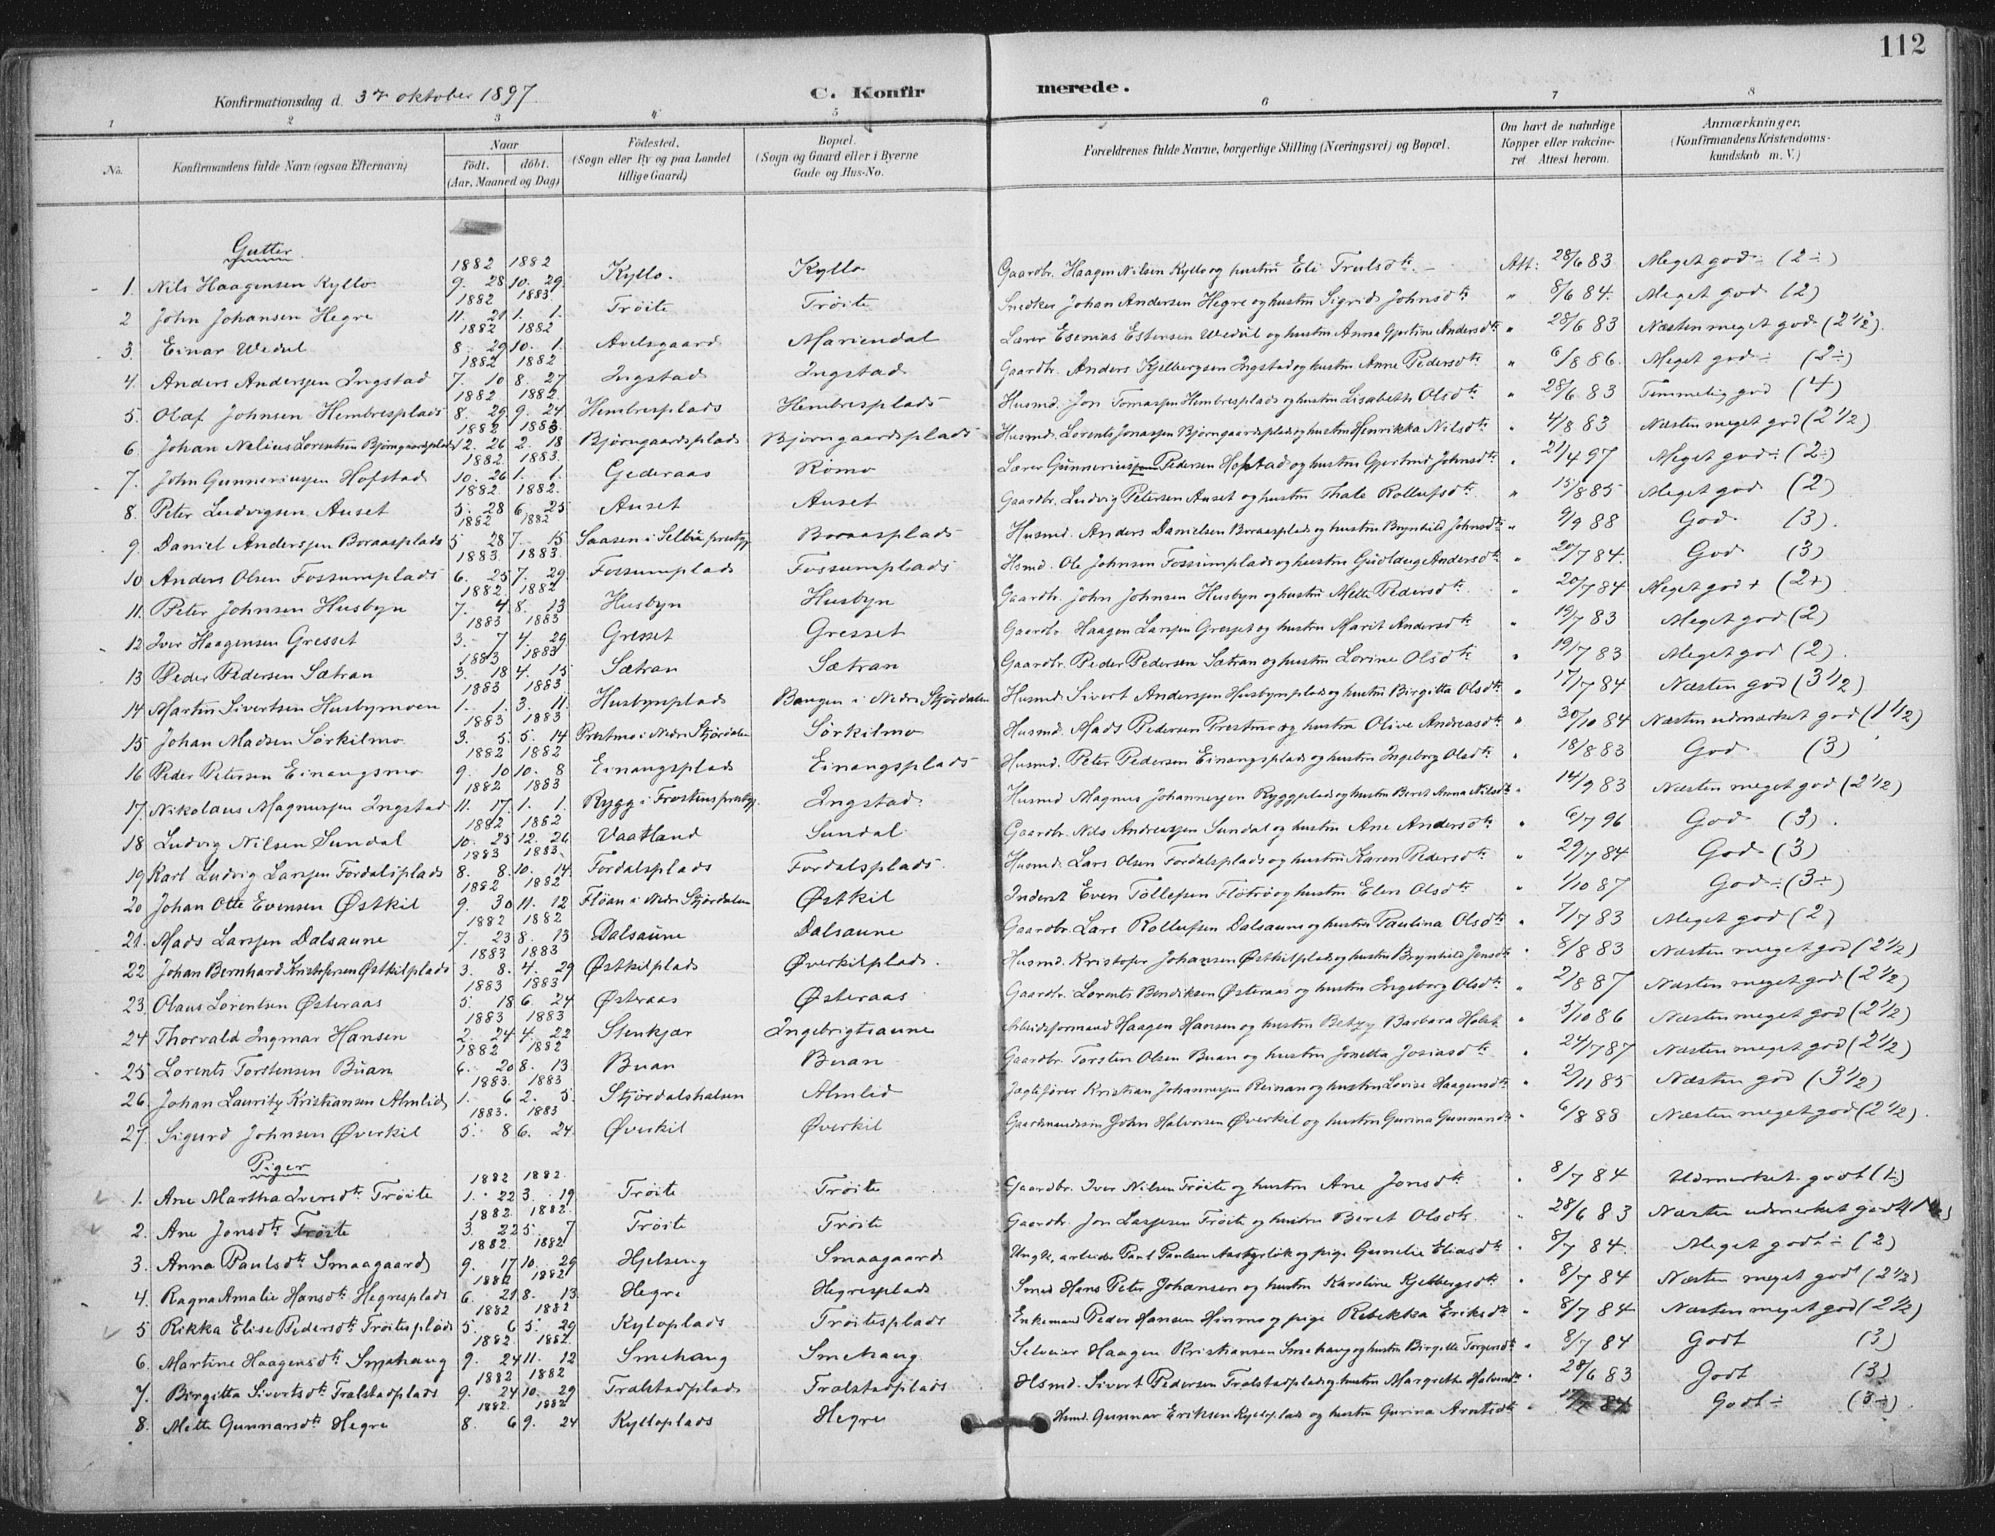 112
Konfirmationsdag d. 3die oktober 1897. C. Konfirmerede.
1 2 3 4 5 6 7 8
No. Konfirmandens fulde Navn (ogsaa Efternavn) Naar födt. döbt. (Aar, Maaned og Dag) Födested. (Sogn eller By og paa Landet tillige Gaard) Bopæl. (Sogn og Gaard eller i Byerne Gade og Hus-No. Forældrenes fulde Navne, borgerlige Stilling (Næringsvei) og Bopæl. Om havt de naturlige Kopper eller vakcineret Attest herom. Anmærkninger, (Konfirmandens Kristendomskundskab m. V.)
Gutter
1. Nils Haagensen Kyllo 1882 9. 28 1882 10. 29 Kyllo. Kyllo Gaardbr. Haagen Nilsen Kyllo og hustru Eli Trulsdtr. Att: 28/6 83 Meget god ÷ (2÷)
2 John Johansen Hegre 1882 11. 21 1883 1. 1. Tröite Tröite Snedker Johan Andersen Hegre og hustru Sigrid Johnsdtr " 8/6 84. Meget god (2)
3. Einar Wedul 1882 8. 29 1882 10. 1. Avelsgaard Mariendal Lærer Esenias Estensen Wedul og hustru Anna Gjertine Andersdtr " 28/6 83 Næsten meget god (2 1/2).
4. Anders Andersen Ingstad 1882 7. 10 1882 8. 27 Ingstad Ingstad Gaardbr. Anders Kjelbergsen Ingstad og hustru Anne Pedersdtr " 6/8 86. Meget god ÷ (2÷)
5. Olaf Johnsen Hembresplads 1882 8. 29 1882. 9. 24 Hembresplads Hembresplads Husmd. Jon Tomassen Hembresplads og hustru Lisabeth Olsdtr " 28/6 83 Temmelig god (4)
6. Johan Nelius Lorentsen Bjørngaardsplads 1882 12. 26 1883 2. 18 Bjørngaardsplads Bjørngaardsplads Husmd. Lorents Jonassen Bjørngaardsplads og hustru Henrikka Nilsdtr " 4/8 83 Næsten meget god (2 1/2)
7. John Gunneriussen Hofstad 1882. 10. 26 1883. 1. 1. Gederaas Römo Lærer Gunnerius Pedersen Hofstad og hustru Gjertrud Johnsdtr " 21/4 97 Meget god ÷ (2÷)
8. Peter Ludvigsen Auset 1882 5. 28 1882. 6. 25 Auset Auset Gaardbr. Ludvig Petersen Auset og hustru Thale Rollefsdtr. " 15/8 85 Meget god (2)
9. Daniel Andersen Boraasplads 1882 5. 28 1882 7. 15 Saasen i Selbu prestgj Boraasplads Husmd. Anders Danielsen Boraasplads og hustru Brynhild Johnsdtr " 9/9 88 God (3).
10 Anders Olsen Fossumplads 1883. 6. 25 1883. 7. 29 Fossumplads Fossumplads Hsmd. Ole Johnsen Fossumplads og hustru Gudlaug Andersdtr " 20/7 84. God (3)
11. Peter Johnsen Husbyn 1882. 7. 4 1882 8. 13 Husbyn Husbyn Gaardbr. John Johnsen Husbyn og hustru Mette Pedersdtr. " 20/7 84 Meget god + (2+)
12 Iver Haagensen Gresset 1883 3. 7 1883 4. 29 Gresset Gresset Gaardbr. Haagen Larsen Gresset og hustru Marit Andersdtr " 19/7 83 Meget god (2)
13 Peder Pedersen Sætran 1883 3. 18 1883 4. 15 Sætran Sætran Gaardbr. Peder Pedersen Sætran og hustru Lorine Olsdtr " 19/7 83 Meget god (2).
14 Martin Sivertsen Husbymoen 1883 1. 1. 1883 3. 11. Husbynsplads Bangen i Nedr Stjørdalen Husmd. Sivert Andersen Husbynplads og hustru Birgitta Olsdtr " 17/7 84 Næsten god (3 1/2)
15 Johan Madsen Sörkilmo 1883 3. 5. 1883 5. 14 Prestmo i Nedr Stjørdalen Sörkilmo Husmd. Mads Pedersen Prestmo og hustru Olive Andreasdtr " 30/10 84 Næsten udmærket god (1 1/2)
16 Peder Petersen Einangsmo 1882 9. 10 1882 10. 8 Einangsplads Einangsplads Husmd. Peter Pedersen Einangsplads og hustru Ingeborg Olsdtr " 18/8 83 God (3)
17. Nikolaus Magnussen Ingstad 1882 11. 17. 1883 1. 1. Rygg i Frostens prestgj. Ingstad Husmd Magnus Johannessen Ryggplads og hustru Beret Anna Nilsdtr " 14/9 83 Næsten meget god (2 1/2)
18 Ludvig Nilsen Sundal 1882 10. 25 1882 12. 26 Vaatland Sundal Gaardbr. Nils Andreassen Sundal og hustru Ane Andersdtr " 6/7 96 God (3).
19 Karl Ludvig Larsen Fordalsplads 1883 8. 8. 1883. 10. 14 Fordalsplads Fordalsplads Husmd. Lars Olsen Fordalsplads og hustru Karen Pedersdtr " 29/7 84 God (3)
20 Johan Otte Evensen Østkil 1882 9. 30 1882 11. 12 Flöan i Nedr Stjørdalen Østkil Inderst Even Tollefsen Flötrö og hustru Elen Olsdtr " 1/10 87 God ÷ (3÷)
21. Mads Larsen Dalsaune 1882 7. 23 1882 8. 13 Dalsaune Dalsaune Gaardbr. Lars Rollefsen Dalsaune og hustru Paulina Olsdtr " 7/7 83 Meget god (2)
22 Johan Bernhard Kristofersen Østkilplads 1883 3. 8. 1883 4. 29 Østkilplads Øverkilplads. Husmd. Kristofer Johansen Østkilplads og hustru Brynhild Jonsdtr " 8/8 83 Næsten meget god (2 1/2)
23. Olaus Lorentsen Østeraas 1883 5. 18 1883 6. 24 Østeraas Østeraas Gaardbr. Lorents Bendiksen Østeraas og hustru Ingeborg Olsdtr " 2/8 87 Næsten meget god (2 1/2)
24 Thorvald Ingmar Hansen 1883 2. 24 1883 4. 22 Stenkjær Ingebrigtsaune Arbeidsformand Haagen Hansen og hustru Betzy Barbara Holst " 5/10 86 Næsten meget god (2 1/2)
25 Lorents Torstensen Buan 1882 6. 20 1882 8. 13 Buan Buan Gaardbr. Torsten Olsen Buan og hustru Jonetta Josiasdtr " 24/7 87 Næsten meget god (2 1/2)
26. Johan Lauritz Kristiansen Almlid 1883. 1. 6 1883 2. 5. Stjördalshalsen Almlid Jægtefører Kristian Johannessen Reinan og hustru Lovise Haagensdtr " 2/11 85 Næsten god (3 1/2)
27. Sigurd Johnsen Øverkil 1883. 5. 8 1883 6. 24. Øverkil Øverkil Gaardmandssøn John Halvorsen Øverkil og hustru Gurina Gunnarsdtr " 6/8 88 Næsten meget god (2 1/2).
Piger
1. Ane Martha Iversdtr Tröite 1882 1. 22 1882. 3. 19 Tröite Tröite Gaardbr. Iver Nilsen Tröite og hustru Ane Jonsdtr " 8/7 84 Udmerket godt (1÷)
2. Ane Jonsdtr Tröite 1882 3. 22 1882. 5. 7 Tröite Tröite Gaardbr Jon Lassesen Tröite og hustru Beret Olsdtr. " 28/6 83 Næsten udmerket godt
3. Anna Paulsdtr Smaagaard 1882. 9. 17 1882 10. 29 Hjelseng Smaagaard Ungk, arbeider Paul Paulsen og pige Gunelie Eliasdtr " 8/7 84. Meget godt ÷ (2)
4. Ragna Amalie Hansdtr Hegresplads 1882 6. 21 1882 8. 13 Hegre Hegresplads Smed Hans Peter Johansen og hustru Karoline Kjelbergsdtr " 8/7 84 Næsten meget god (2 1/2)
5 Rikka Elise Pedersdtr Tröitesplads 1882 5. 6 1882 5. 29 Kyloplads Tröitesplads Enkemand Peder Hansen Hinmo og pige Rebekka Eriksdtr " 8/7 84 Næsten meget god (2 1/2)
6. Martine Haagensdtr Smehaug 1882 9. 24 1882. 11. 12 Smehaug Smehaug Selveier Haagen Kristiansen Smehaug og hustru Birgitte Torgersdtr " 8/7 84 Godt (3)
7. Birgitta Sivertsdtr Tralstadplads 1882 9. 24 1882 10. 29 Tralstadplads Tralstadplads Hsmd. Sivert Pedersen Tralstadplads og hustru Margrethe Halvorsdtr " 28/6 83 Godt (3)
8. Mette Gunnarsdtr Hegre 1882. 8. 6 1882 9. 24 Kylloplads Hegre Hsmd. Gunnar Eriksen Kylloplads og hustru Gurina Arntsdtr " 84 Godt ÷ (3÷).